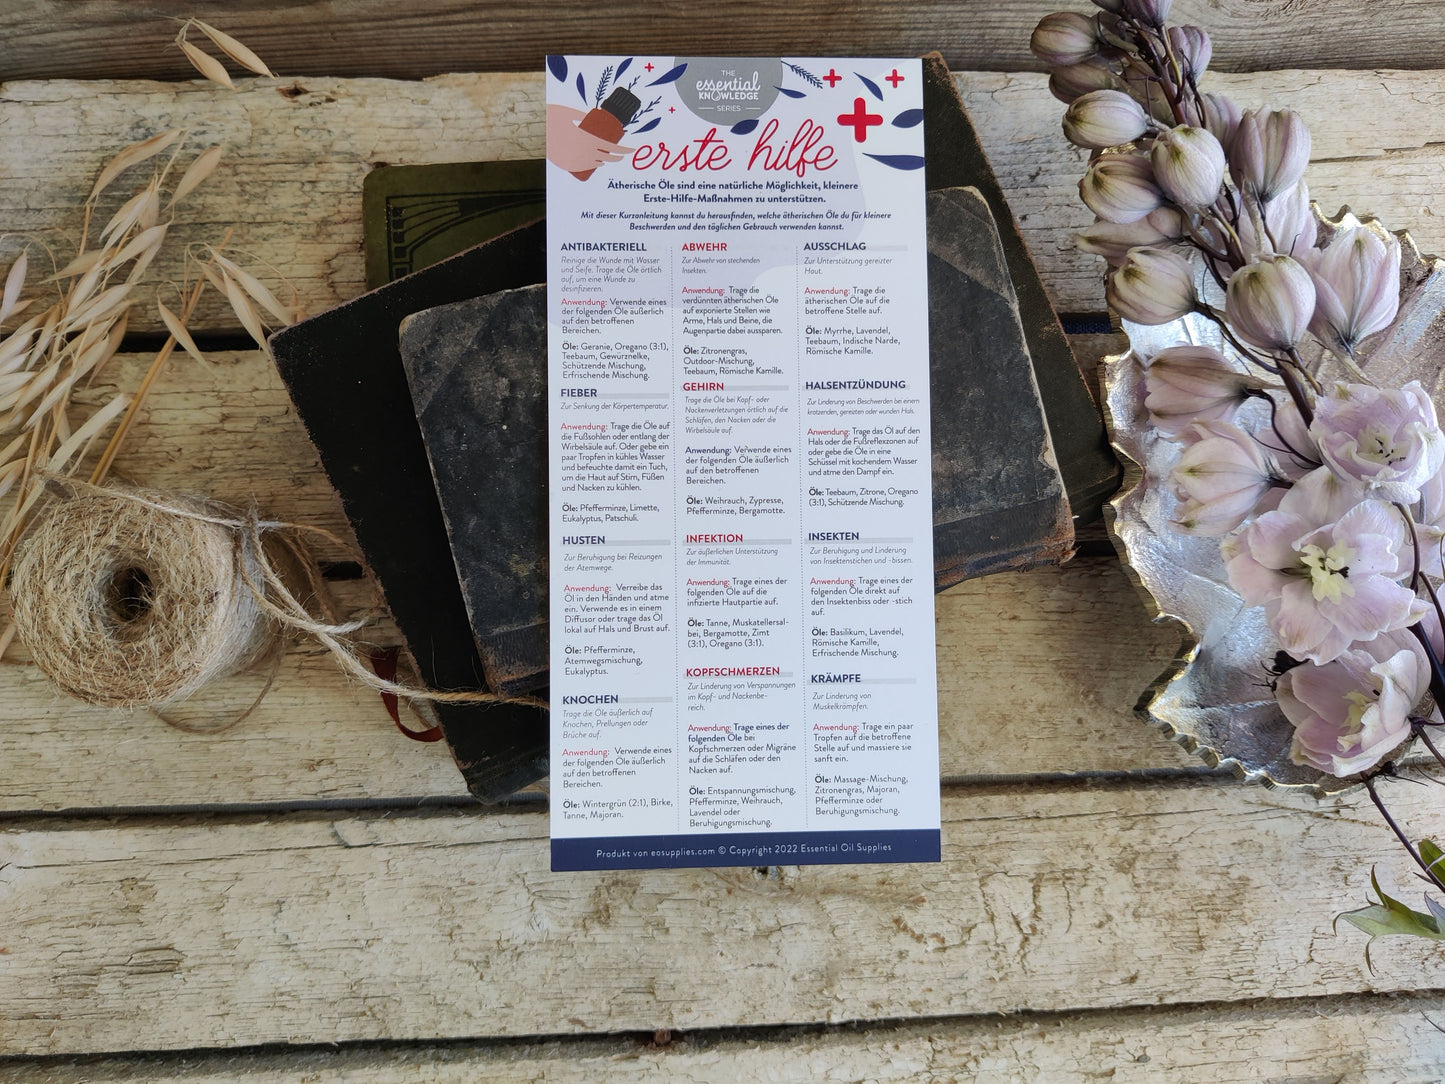 THE
essential
KNOWLEDGE
SERIES
erste hilfe
Ätherische Öle sind eine natürliche Möglichkeit, kleinere
Erste-Hilfe-Maßnahmen zu unterstützen.
Mit dieser Kurzanleitung kannst du herausfinden, welche ätherischen Öle du für kleinere
Beschwerden und den täglichen Gebrauch verwenden kannst.
ANTIBAKTERIELL
Reinige die Wunde mit Wasser
und Seife. Trage die Öle örtlich
auf, um eine Wunde zu
desinfizieren.
Anwendung: Verwende eines
der folgenden Öle äußerlich
auf den betroffenen
Bereichen.
Öle: Geranie, Oregano (3:1),
Teebaum, Gewürznelke,
Schützende Mischung,
Erfrischende Mischung.
FIEBER
Zur Senkung der Körpertemperatur.
Anwendung: Trage die Öle auf
die Fußsohlen oder entlang der
Wirbelsäule auf. Oder gebe ein
paar Tropfen in kühles Wasser
und befeuchte damit ein Tuch,
um die Haut auf Stirn, Füßen
und Nacken zu kühlen.
Öle: Pfefferminze, Limette,
Eukalyptus, Patschuli.
HUSTEN
Zur Beruhigung bei Reizungen
der Atemwege.
Anwendung: Verreibe das
Öl in den Händen und atme
ein. Verwende es in einem
Diffusor oder trage das Öl
lokal auf Hals und Brust auf.
Öle: Pfefferminze,
Atemwegsmischung,
Eukalyptus.
KNOCHEN
Trage die Öle äußerlich auf
Knochen, Prellungen oder
Brüche auf.
Anwendung: Verwende eines
der folgenden Öle äußerlich
auf den betroffenen
Bereichen.
Öle: Wintergrün (2:1), Birke,
Tanne, Majoran.
ABWEHR
Zur Abwehr von stechenden
Insekten.
Anwendung: Trage die
verdünnten ätherischen Öle
auf exponierte Stellen wie
Arme, Hals und Beine, die
Augenpartie dabei aussparen.
Öle: Zitronengras,
Outdoor-Mischung,
Teebaum, Römische Kamille.
GEHIRN
Trage die Öle bei Kopf- oder
Nackenverletzungen örtlich auf die
Schläfen, den Nacken oder die
Wirbelsäule auf.
Anwendung: Verwende eines
der folgenden Öle äußerlich
auf den betroffenen
Bereichen.
Öle: Weihrauch, Zypresse,
Pfefferminze, Bergamotte.
INFEKTION
Zur äußerlichen Unterstützung
der Immunität.
Anwendung: Trage eines der
folgenden Öle auf die
infizierte Hautpartie auf.
Öle: Tanne, Muskatellersal-
bei, Bergamotte, Zimt
(3:1), Oregano (3:1).
KOPFSCHMERZEN
Zur Linderung von Verspannungen
im Kopf- und Nackenbe-
reich.
Anwendung: Trage eines der
folgenden Öle bei
Kopfschmerzen oder Migräne
auf die Schläfen oder den
Nacken auf.
Öle: Entspannungsmischung,
Pfefferminze, Weihrauch,
Lavendel oder
Beruhigungsmischung.
AUSSCHLAG
Zur Unterstützung gereizter
Haut.
Anwendung: Trage die
ätherischen Öle auf die
betroffene Stelle auf.
Öle: Myrrhe, Lavendel,
Teebaum, Indische Narde,
Römische Kamille.
HALSENTZÜNDUNG
Zur Linderung von Beschwerden bei einem
kratzenden, gereizten oder wunden Hals.
Anwendung: Trage das Öl auf den
Hals oder die Fußreflexzonen auf
oder gebe die Öle in eine
Schüssel mit kochendem Wasser
und atme den Dampf ein.
Öle: Teebaum, Zitrone, Oregano
(3:1), Schützende Mischung.
INSEKTEN
Zur Beruhigung und Linderung
von Insektenstichen und -bissen.
Anwendung: Trage eines der
folgenden Öle direkt auf
den Insektenbiss oder -stich
auf.
Öle: Basilikum, Lavendel,
Römische Kamille,
Erfrischende Mischung.
KRÄMPFE
Zur Linderung von
Muskelkrämpfen.
Anwendung: Trage ein paar
Tropfen auf die betroffene
Stelle auf und massiere sie
sanft ein.
Öle: Massage-Mischung,
Zitronengras, Majoran,
Pfefferminze oder
Beruhigungsmischung.
Produkt von eosupplies.com © Copyright 2022 Essential Oil Supplies